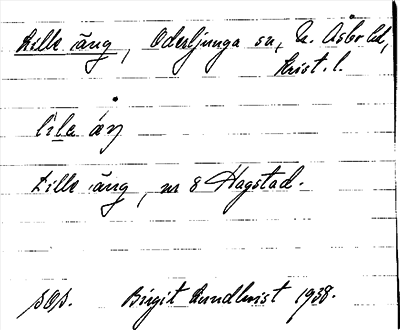 Lille äng, Oderljunga sn, N. Åsbo hd,
Krist. l.
lìla áŋ
Lille äng, nr 8 Hagstad.
sOs. Birgit Lundkvist 1938.